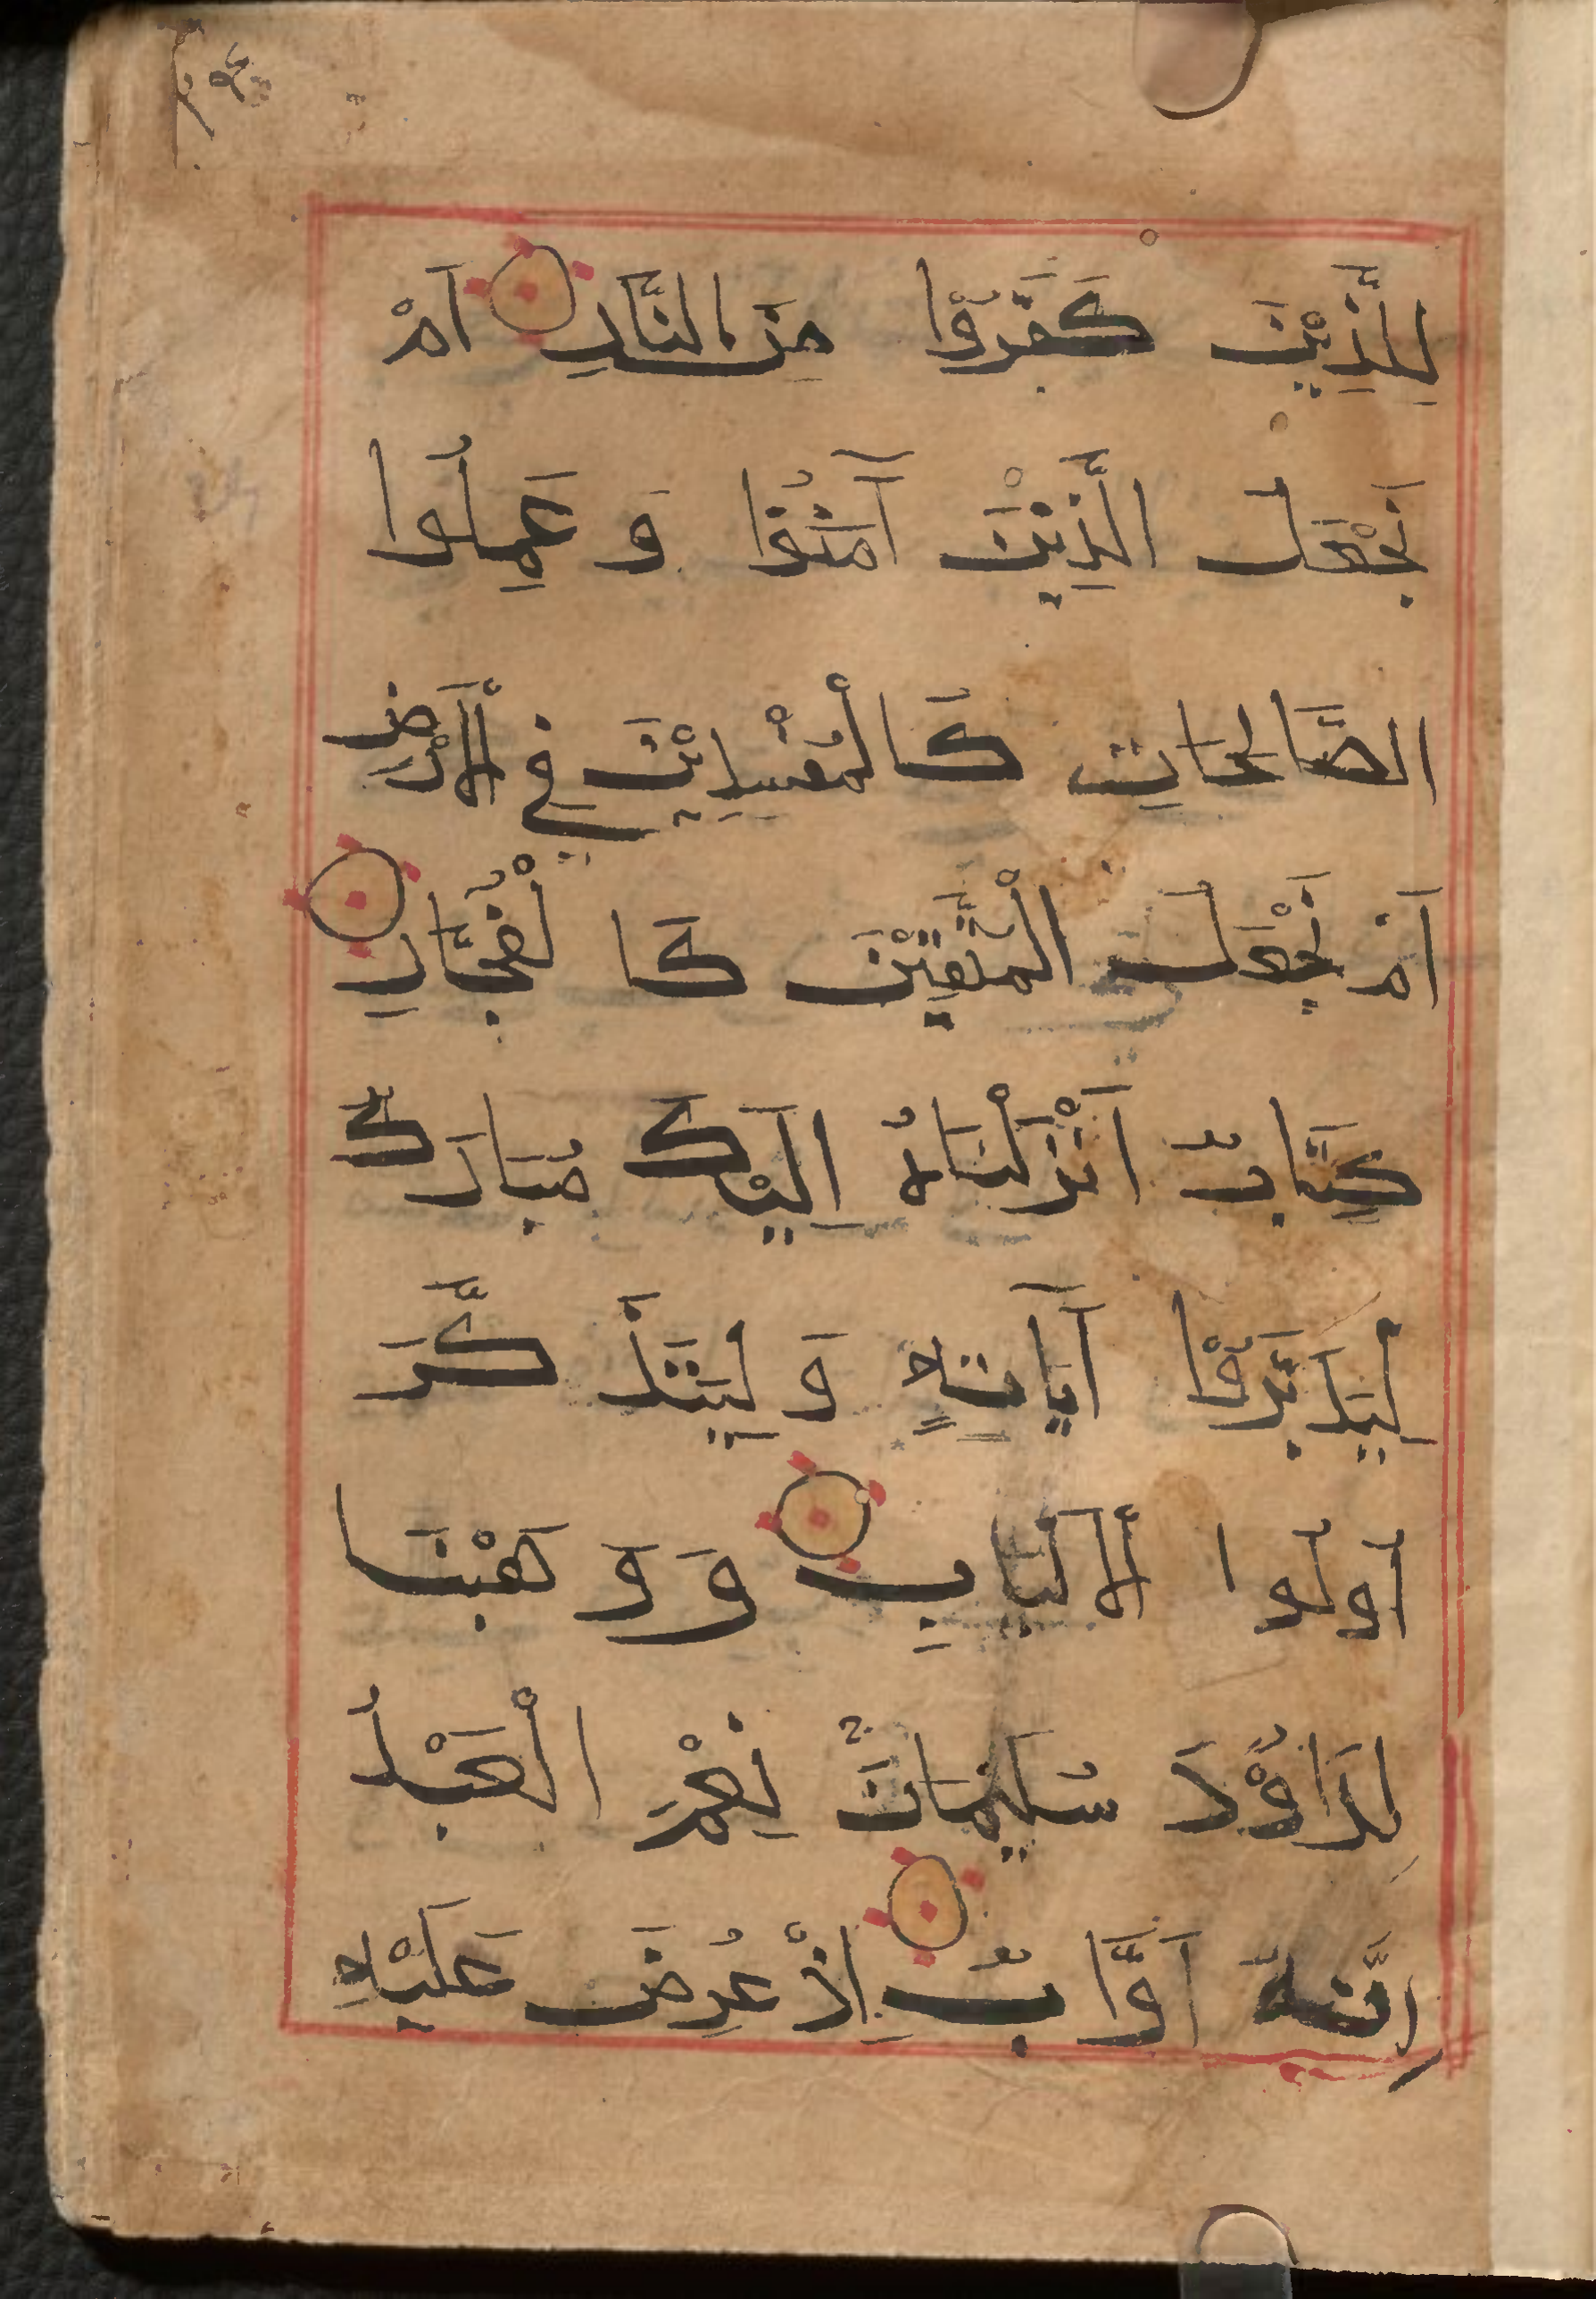 لِلَّذِيْنَ كَفَرُوْا مِنَ النَّارِ اَمْ
نَجْعَلُ الَّذِيْنَ آمَنُوْا وَ عَمِلُوا
الصَّالِحَاتِ كَالْمُفْسِدِيْنَ فِي الْاَرْضِ
اَمْ نَجْعَلُ الْمُتَّقِيْنَ كَا لْفُجَّارِ
كِتَابٌ اَنْزَلْنَاهُ اِلَيْكَ مُبَارَكٌ
لِيَدَبَّرَوْا آيَاتِهِ وَ لِيَتَذَ كَّرَ
اُولُوا الْاَلْبَابِ وَ وَ هَبْنَا
لِدَاوُدَ سُلَيْمَانَ نِعْمَ الْعَبْدُ
اِنَّهُ اَوَّابٌ اِذْ عُرِضَ عَلَيْهِ